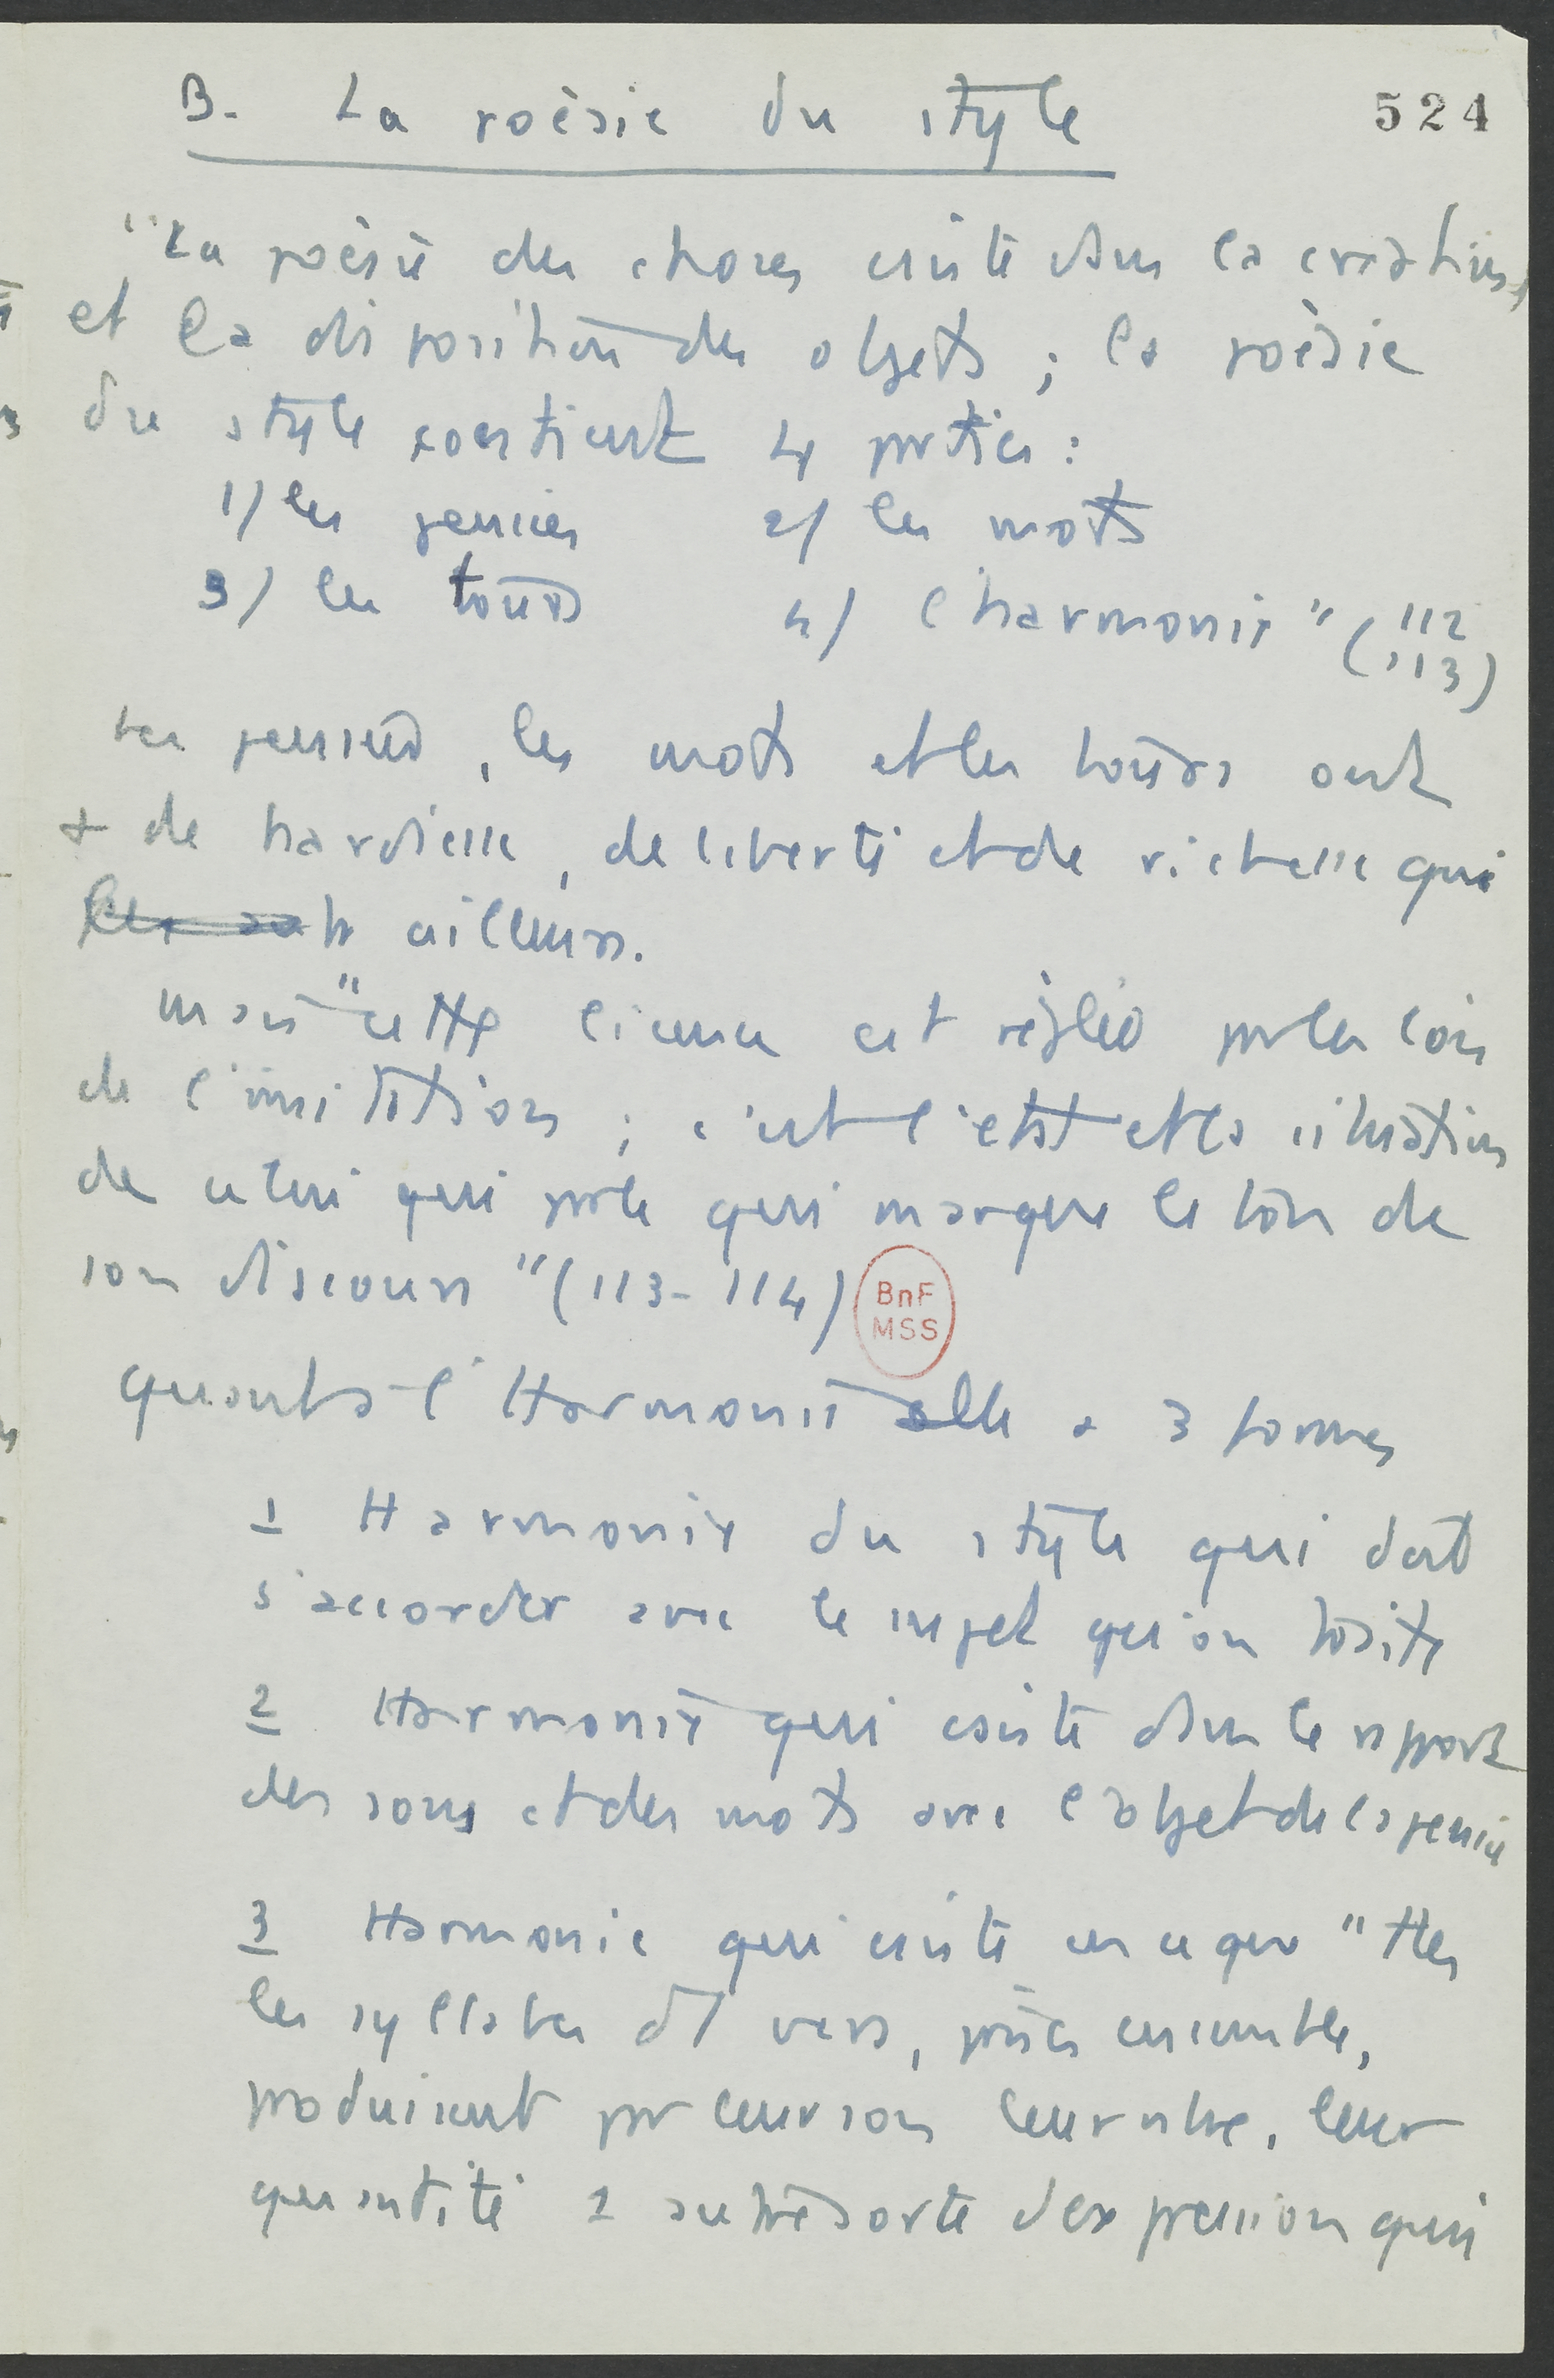 B. La poésie du style
524
"La poésie des choses consiste dans la création
et la disposition des objets ; la poésie
du style contient 4 parties :
1/ les pensées 2/ les mots
3/ les tours 4/ l'harmonie" (112
113)
Les pensées, les mots et les tours ont
+ de hardiesse, de liberté et de richesse que
ailleurs.
mais "cette licence est réglée par les lois
de l'imitation ; c'est l'état et la situation
de celui qui parle qui marque le ton de
son discours" (113-114)
BnF
MSS
quant à l'Harmonie elle a 3 formes
1 Harmonie du style qui doit
s'accorder avec le sujet qu'on traite
2 Harmonie qui consiste dans le rapport
des sons et des mots avec l'objet de la pensée
3 Harmonie qui consiste en ce que "ttes
les syllabes d'1 vers, prises ensemble,
produisent par leur son leur nbre, leur
quantité 1 autre sorte d'expression qui